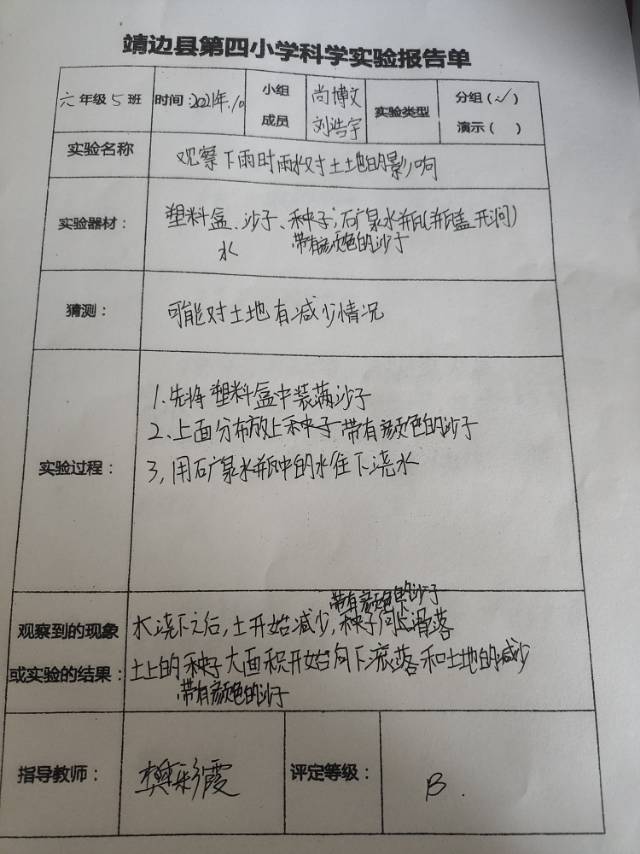 靖边县第四小学科学实验报告单
六年级5班 时间:2021年.10 小组成员 尚博文 刘浩宇 实验类型 分组(√) 演示( )
实验名称 观察下雨时雨水对土土地的影响
实验器材: 塑料盒、沙子、种子,矿泉水瓶(瓶盖开洞)
水 带有颜色的沙子
猜测: 可能对土地有减少情况
实验过程:
1.先将塑料盒中装满沙子
2.上面分布放上种子带有颜色的沙子
3,用矿泉水瓶中的水往下浇水
带有颜色的沙子
观察到的现象 水浇下之后,土开始减少,种子向下滑落
或实验的结果: 土上的种子大面积开始向下滚落和土地的减少
带有颜色的沙子
指导教师: 樊彩霞 评定等级: B.